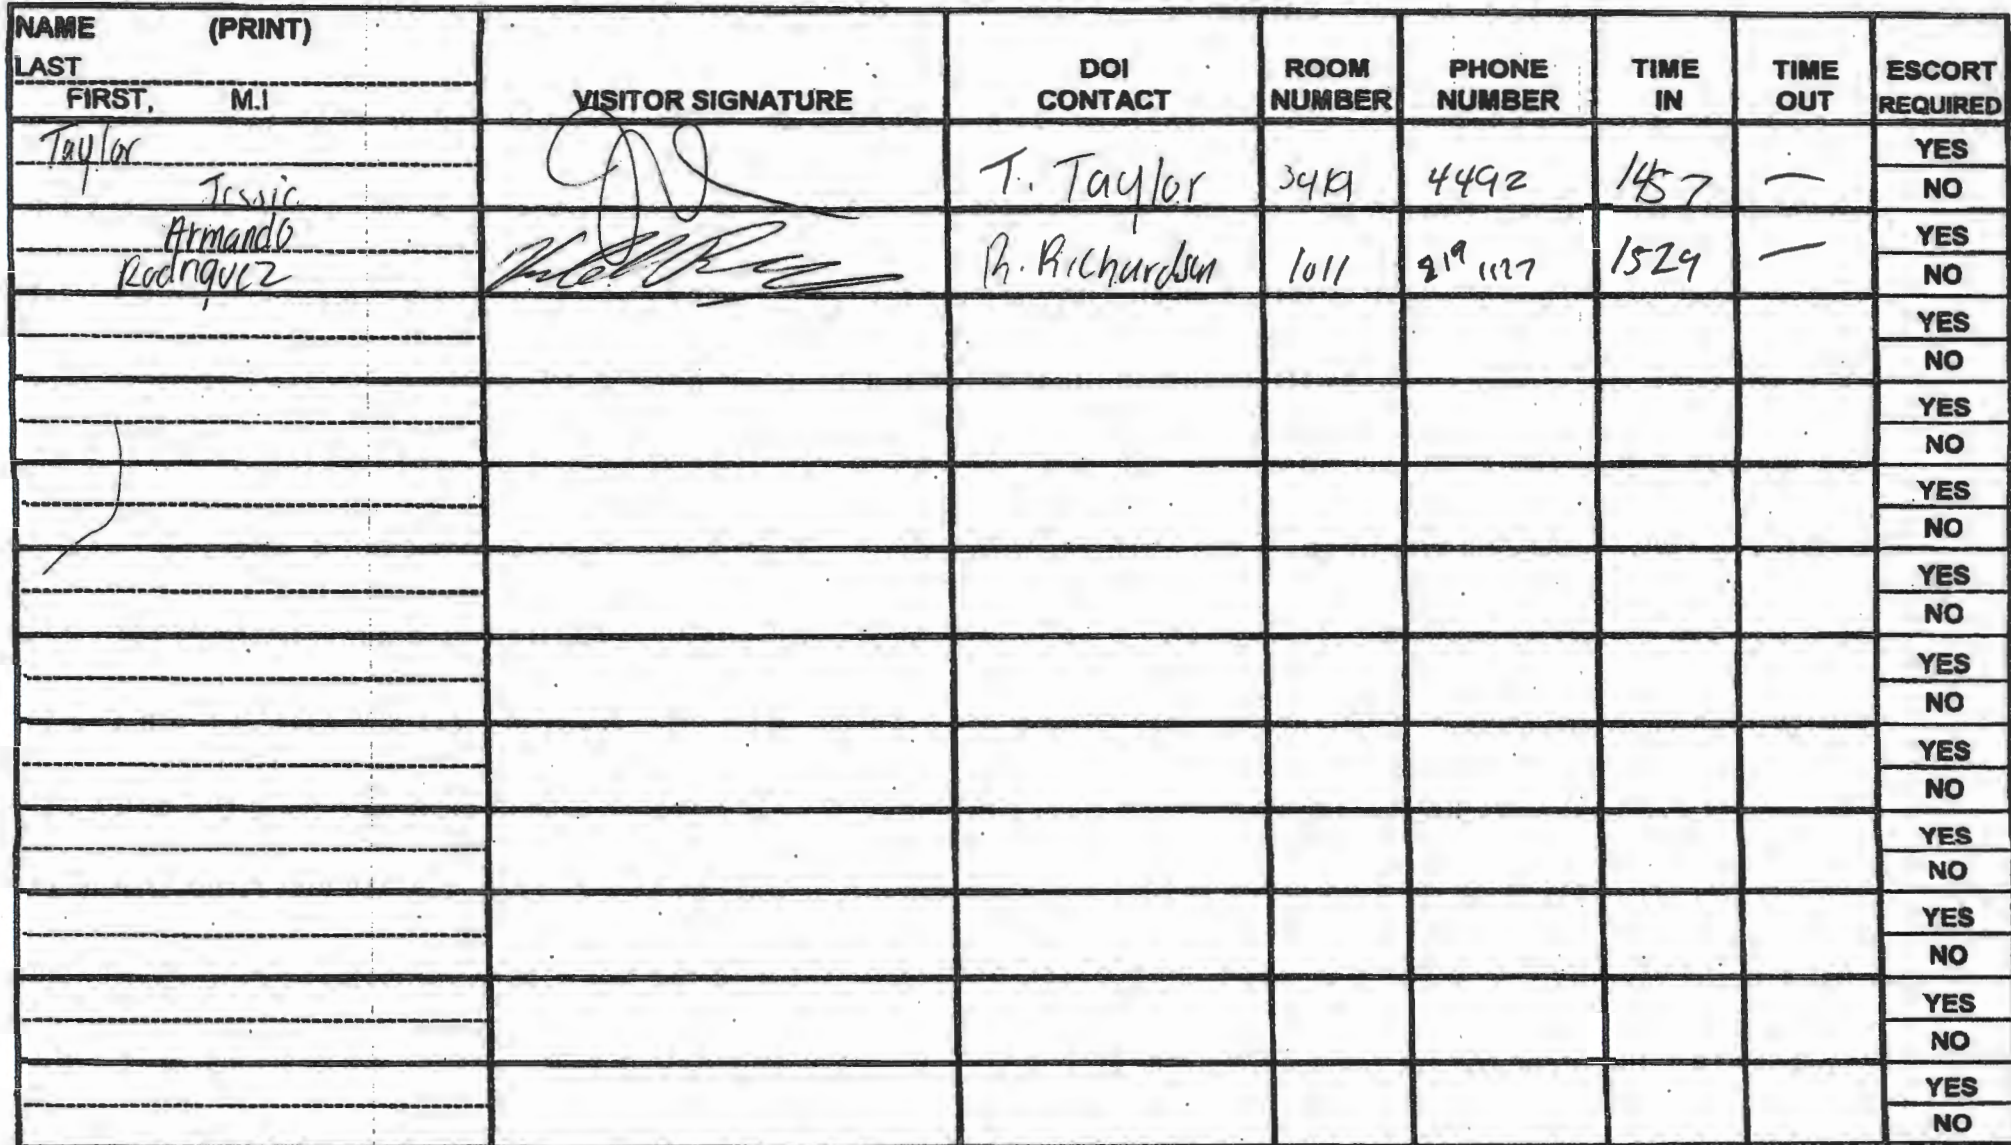 NAME (PRINT)
LAST
FIRST, M.I
VISITOR SIGNATURE
DOI
CONTACT
ROOM
NUMBER
PHONE
NUMBER
TIME
IN
TIME
OUT
ESCORT
REQUIRED
Taylor
T. Taylor 4492 1457 —
YES
NO
Armando
Rodriguez
R. Richardson 1011 1529 —
YES
NO
YES
NO
YES
NO
YES
NO
YES
NO
YES
NO
YES
NO
YES
NO
YES
NO
YES
NO
YES
NO